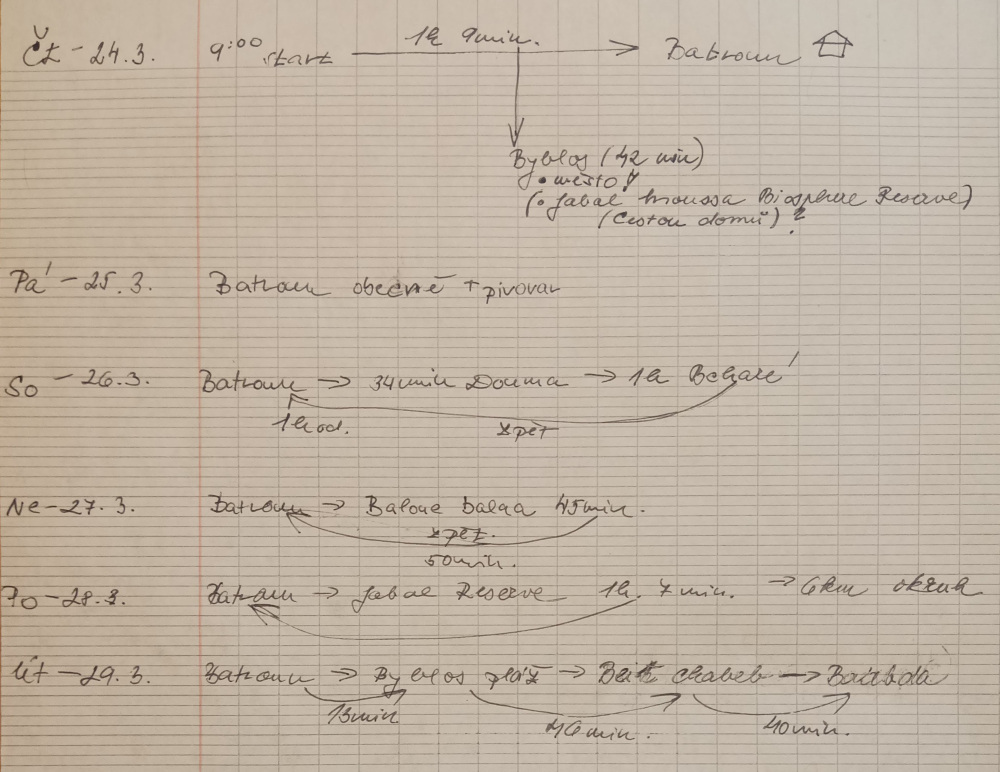 Čt - 24.3. 9:00 start 1h 9min. → Batroun
Byblos (42 min)
• město!
(• Jabal moussa Biosphere Reserve)
(Cestou domů) ?
Pá - 25.3. Batroun obecně + pivovar
So - 26.3. Batroun → 34min Douma → 1h Bcharé
1hod. zpět
Ne - 27.3. Batroun → Baloue balaa 45min.
zpět.
50min.
Po - 28.3. Batroun → Jabal Reserve 1h. 7min. → 6km okruh
Út - 29.3. Batroun → Byblos pláž → Beit chabab → Baabda
13min 46min. 40min.